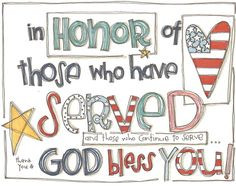 in HONOR of
those who have
SERVED
and those who continue to serve...
thank you &
GOD bless YOU!